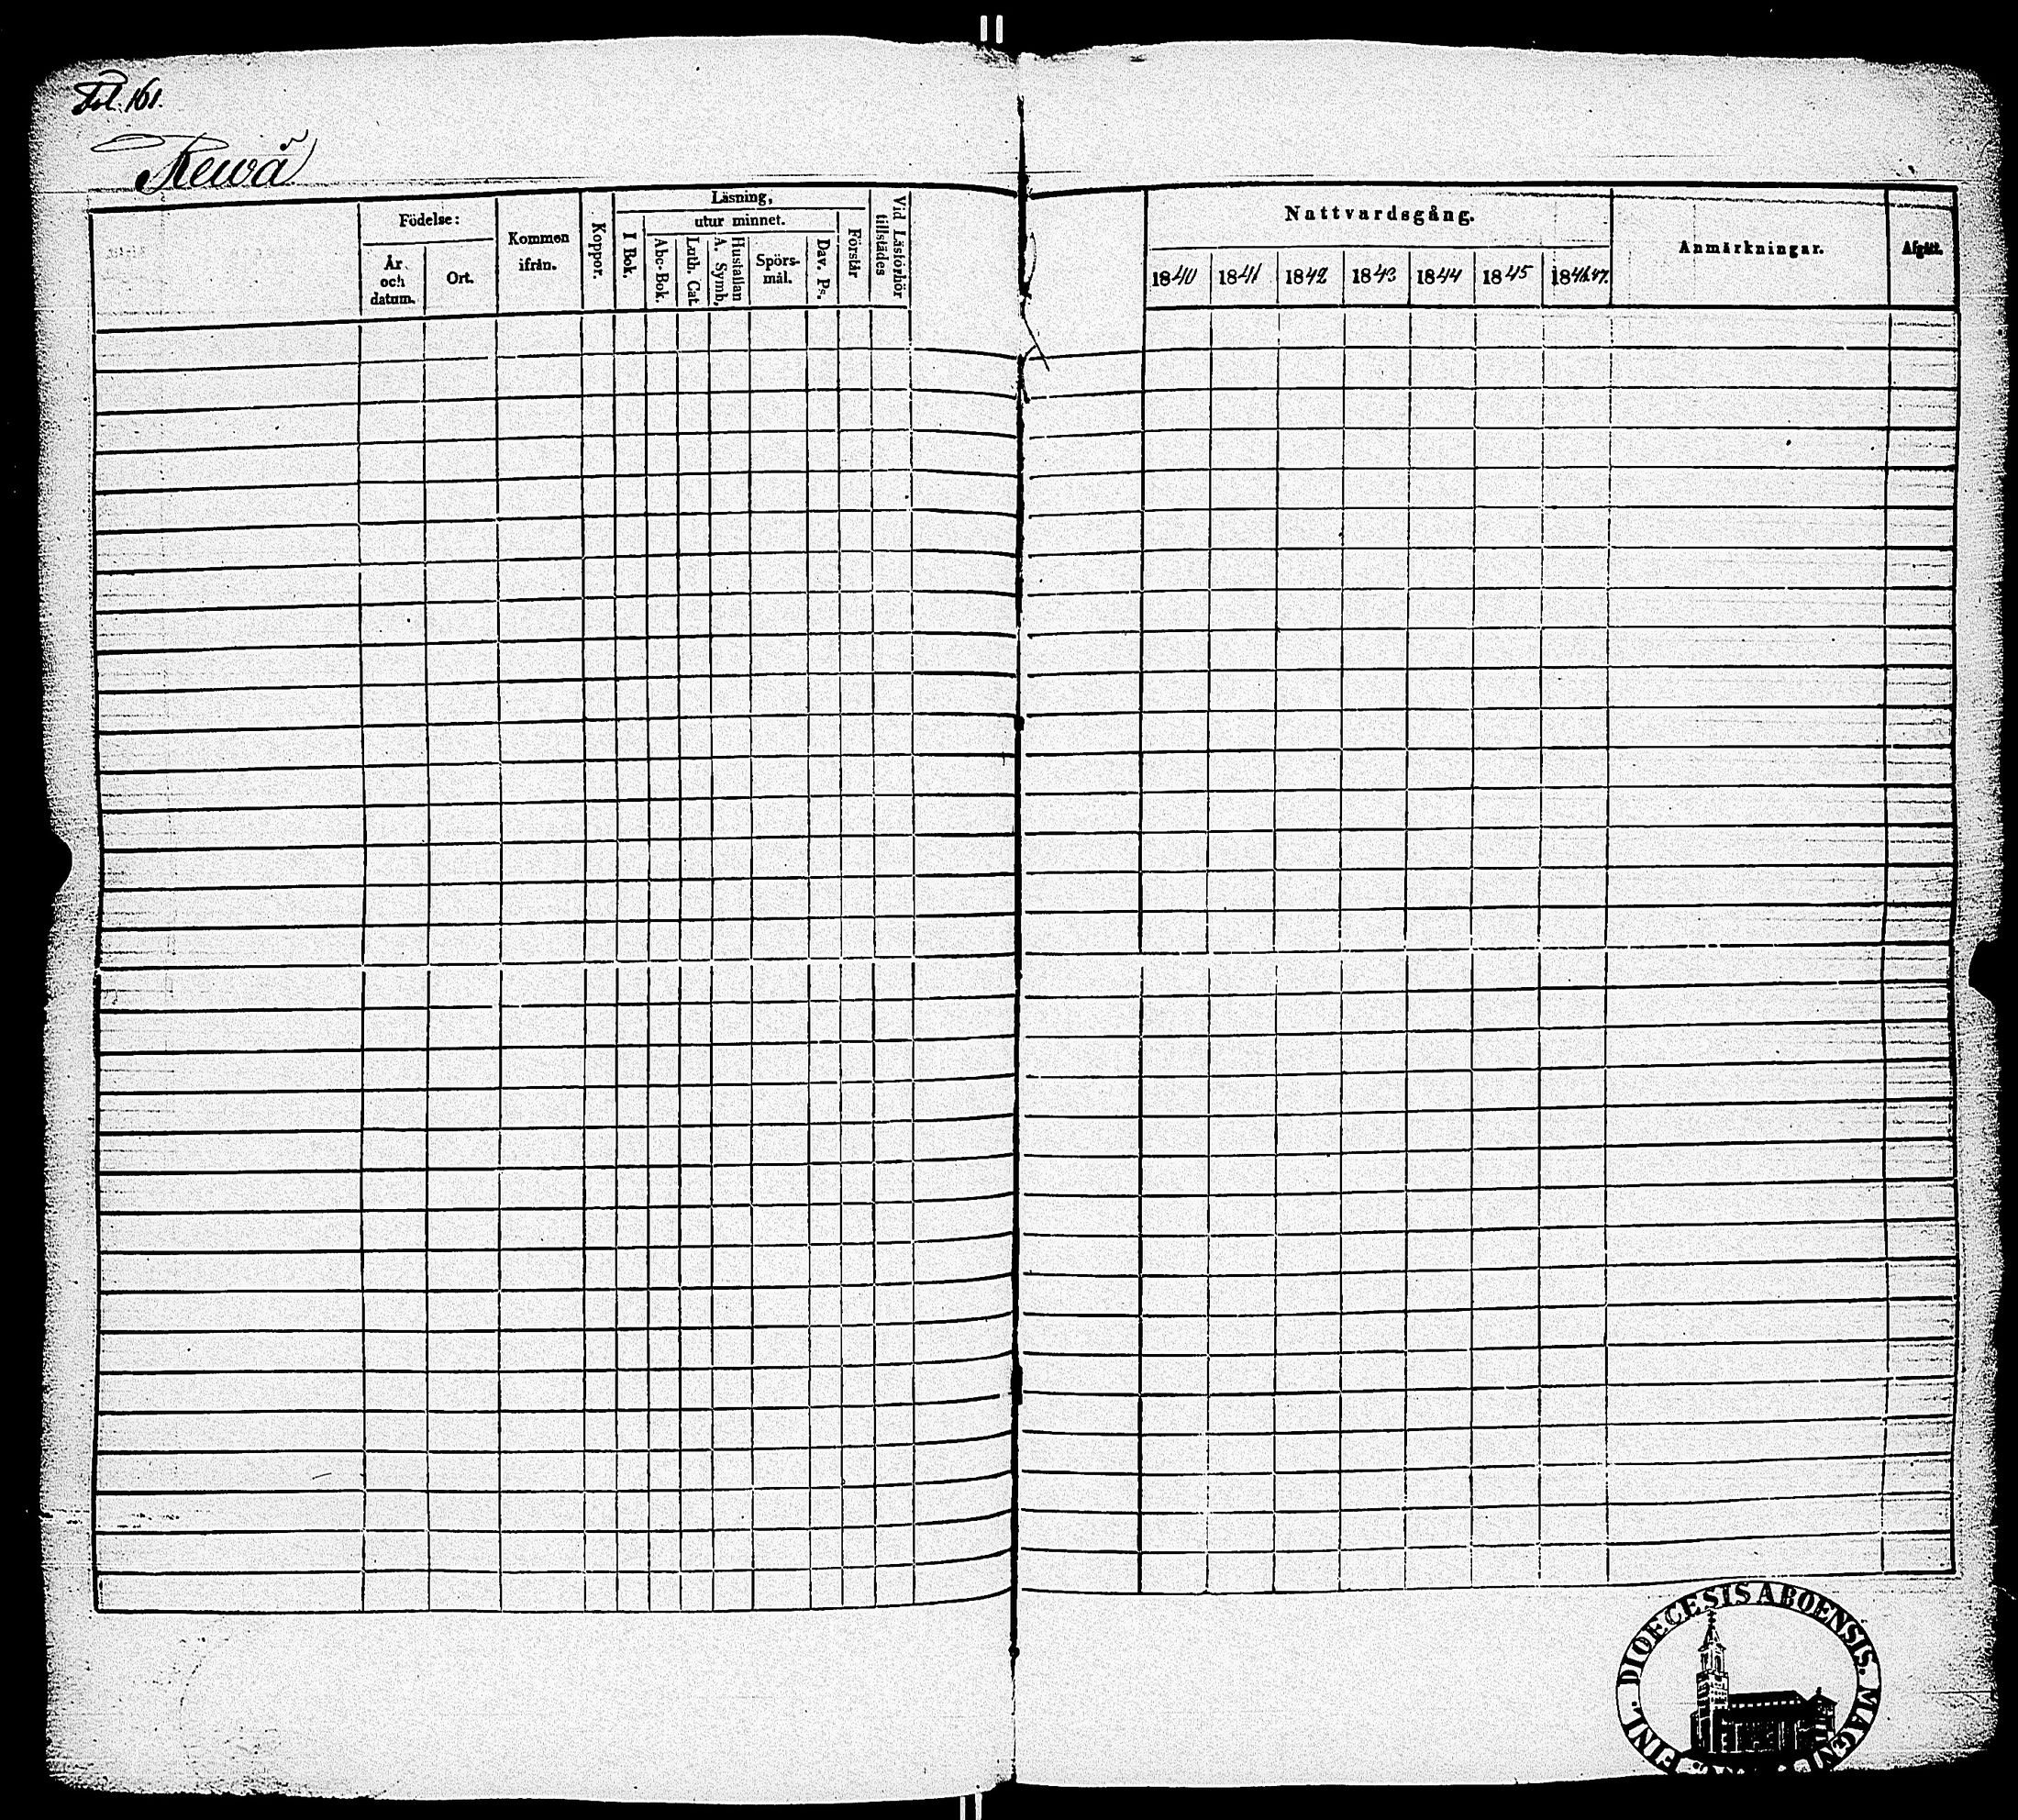 Fol. 161.
Rewå
Födelse:
År och datum.
Ort.
Kommen ifrån.
Koppor.
Läsning,
I Bok.
utur minnet.
Abc-Bok.
Luth. Cat.
Hustaflan A. Symb.
Spörs-mål.
Dav. Ps.
Förstår
Vid Läsförhör tillstädes
Nattvardsgång.
1840 1841 1842 1843 1844 1845 1846.47.
Anmärkningar.
Afgått.
DIOECESIS ABOENSIS. MAGNI FINL.